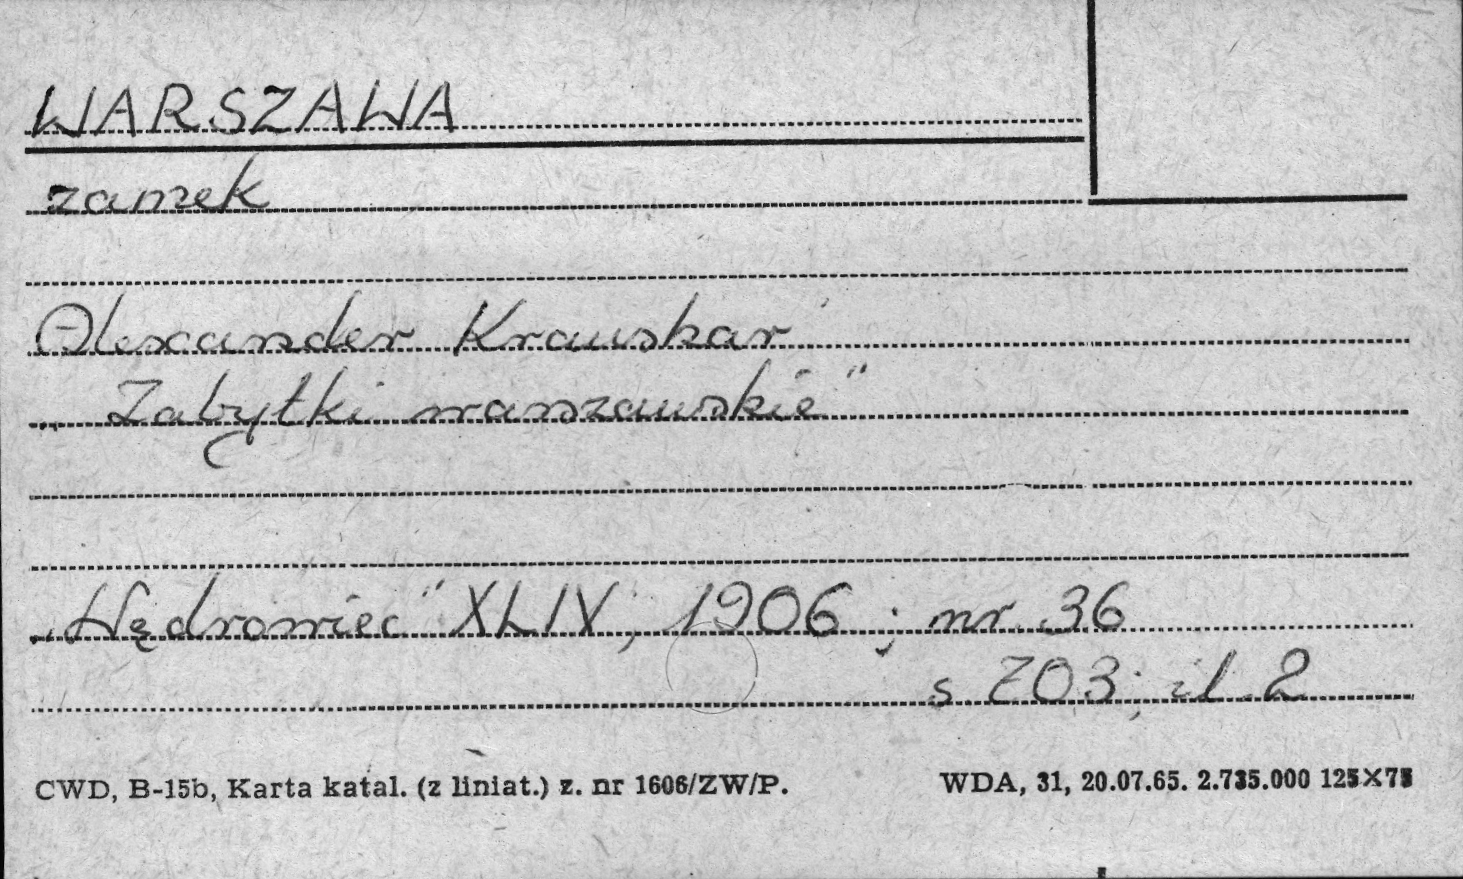 WARSZAWA
zamek
Alexander Kraushar
„Zabytki warszawskie"
„Wędrowiec" XLIV, 1906; nr 36
s 703; il. 2
CWD, B-15b, Karta katal. (z liniat.) z. nr 1606/ZW/P.
WDA, 31, 20.07.65. 2.735.000 125×75